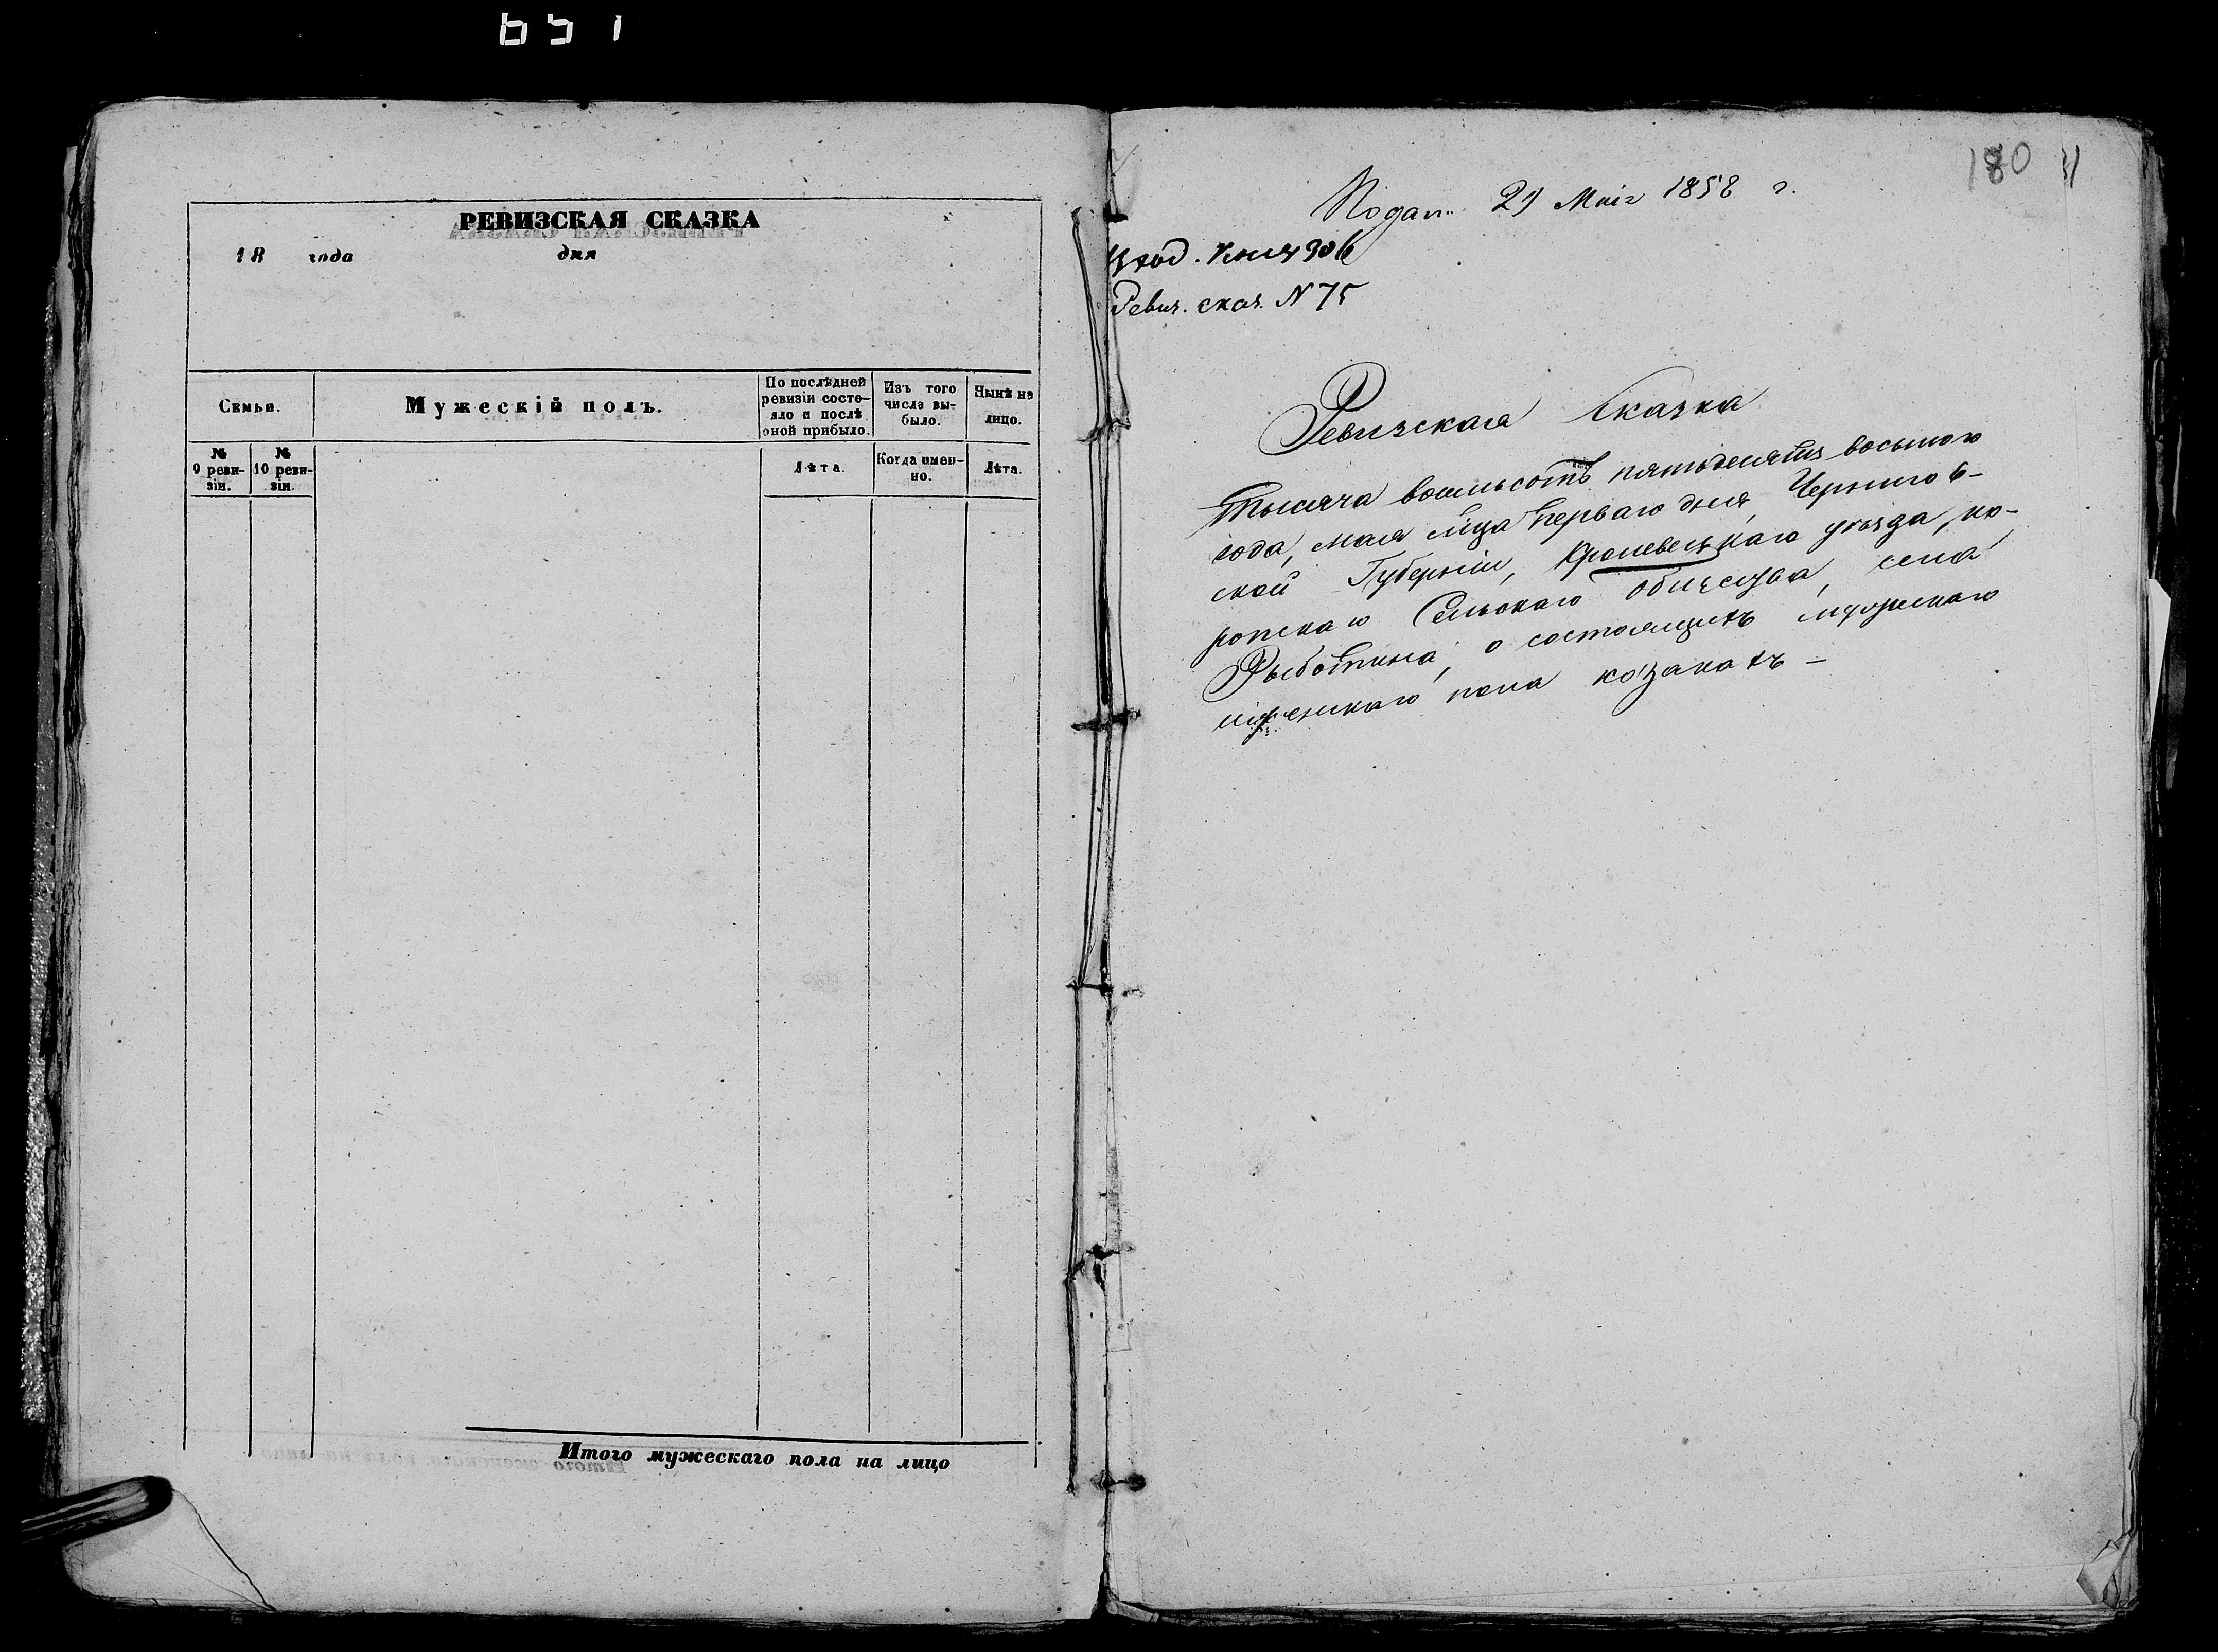 651
РЕВИЗСКАЯ СКАЗКА
18 года дня
Семьи.
Мужескій полъ.
По послѣдней ревизіи состо-
яло и послѣ
оной прибыло.
Изъ того
числа вы-
было.
Нынѣ на
лицо.
№
9 реви-
зіи.
№
10 реви-
зіи.
Лѣта.
Когда имен-
но.
Лѣта.
Итого мужескаго пола на лицо
180
Подан. 29 Маія 1858 г.
Вход. книг 306
Ревиз. сказ. N 75
Ревизская Сказка
Тысяча восемьсотъ пятьдесятъ восьмого
года, мая мца перваго дня, Чернигов-
ской Губерніи, Кролевецкаго уѣзда, ко-
ропскаго Сельскаго общества, села
Рыботина, о состоящихъ мужескаго
и женскаго пола козакахъ –